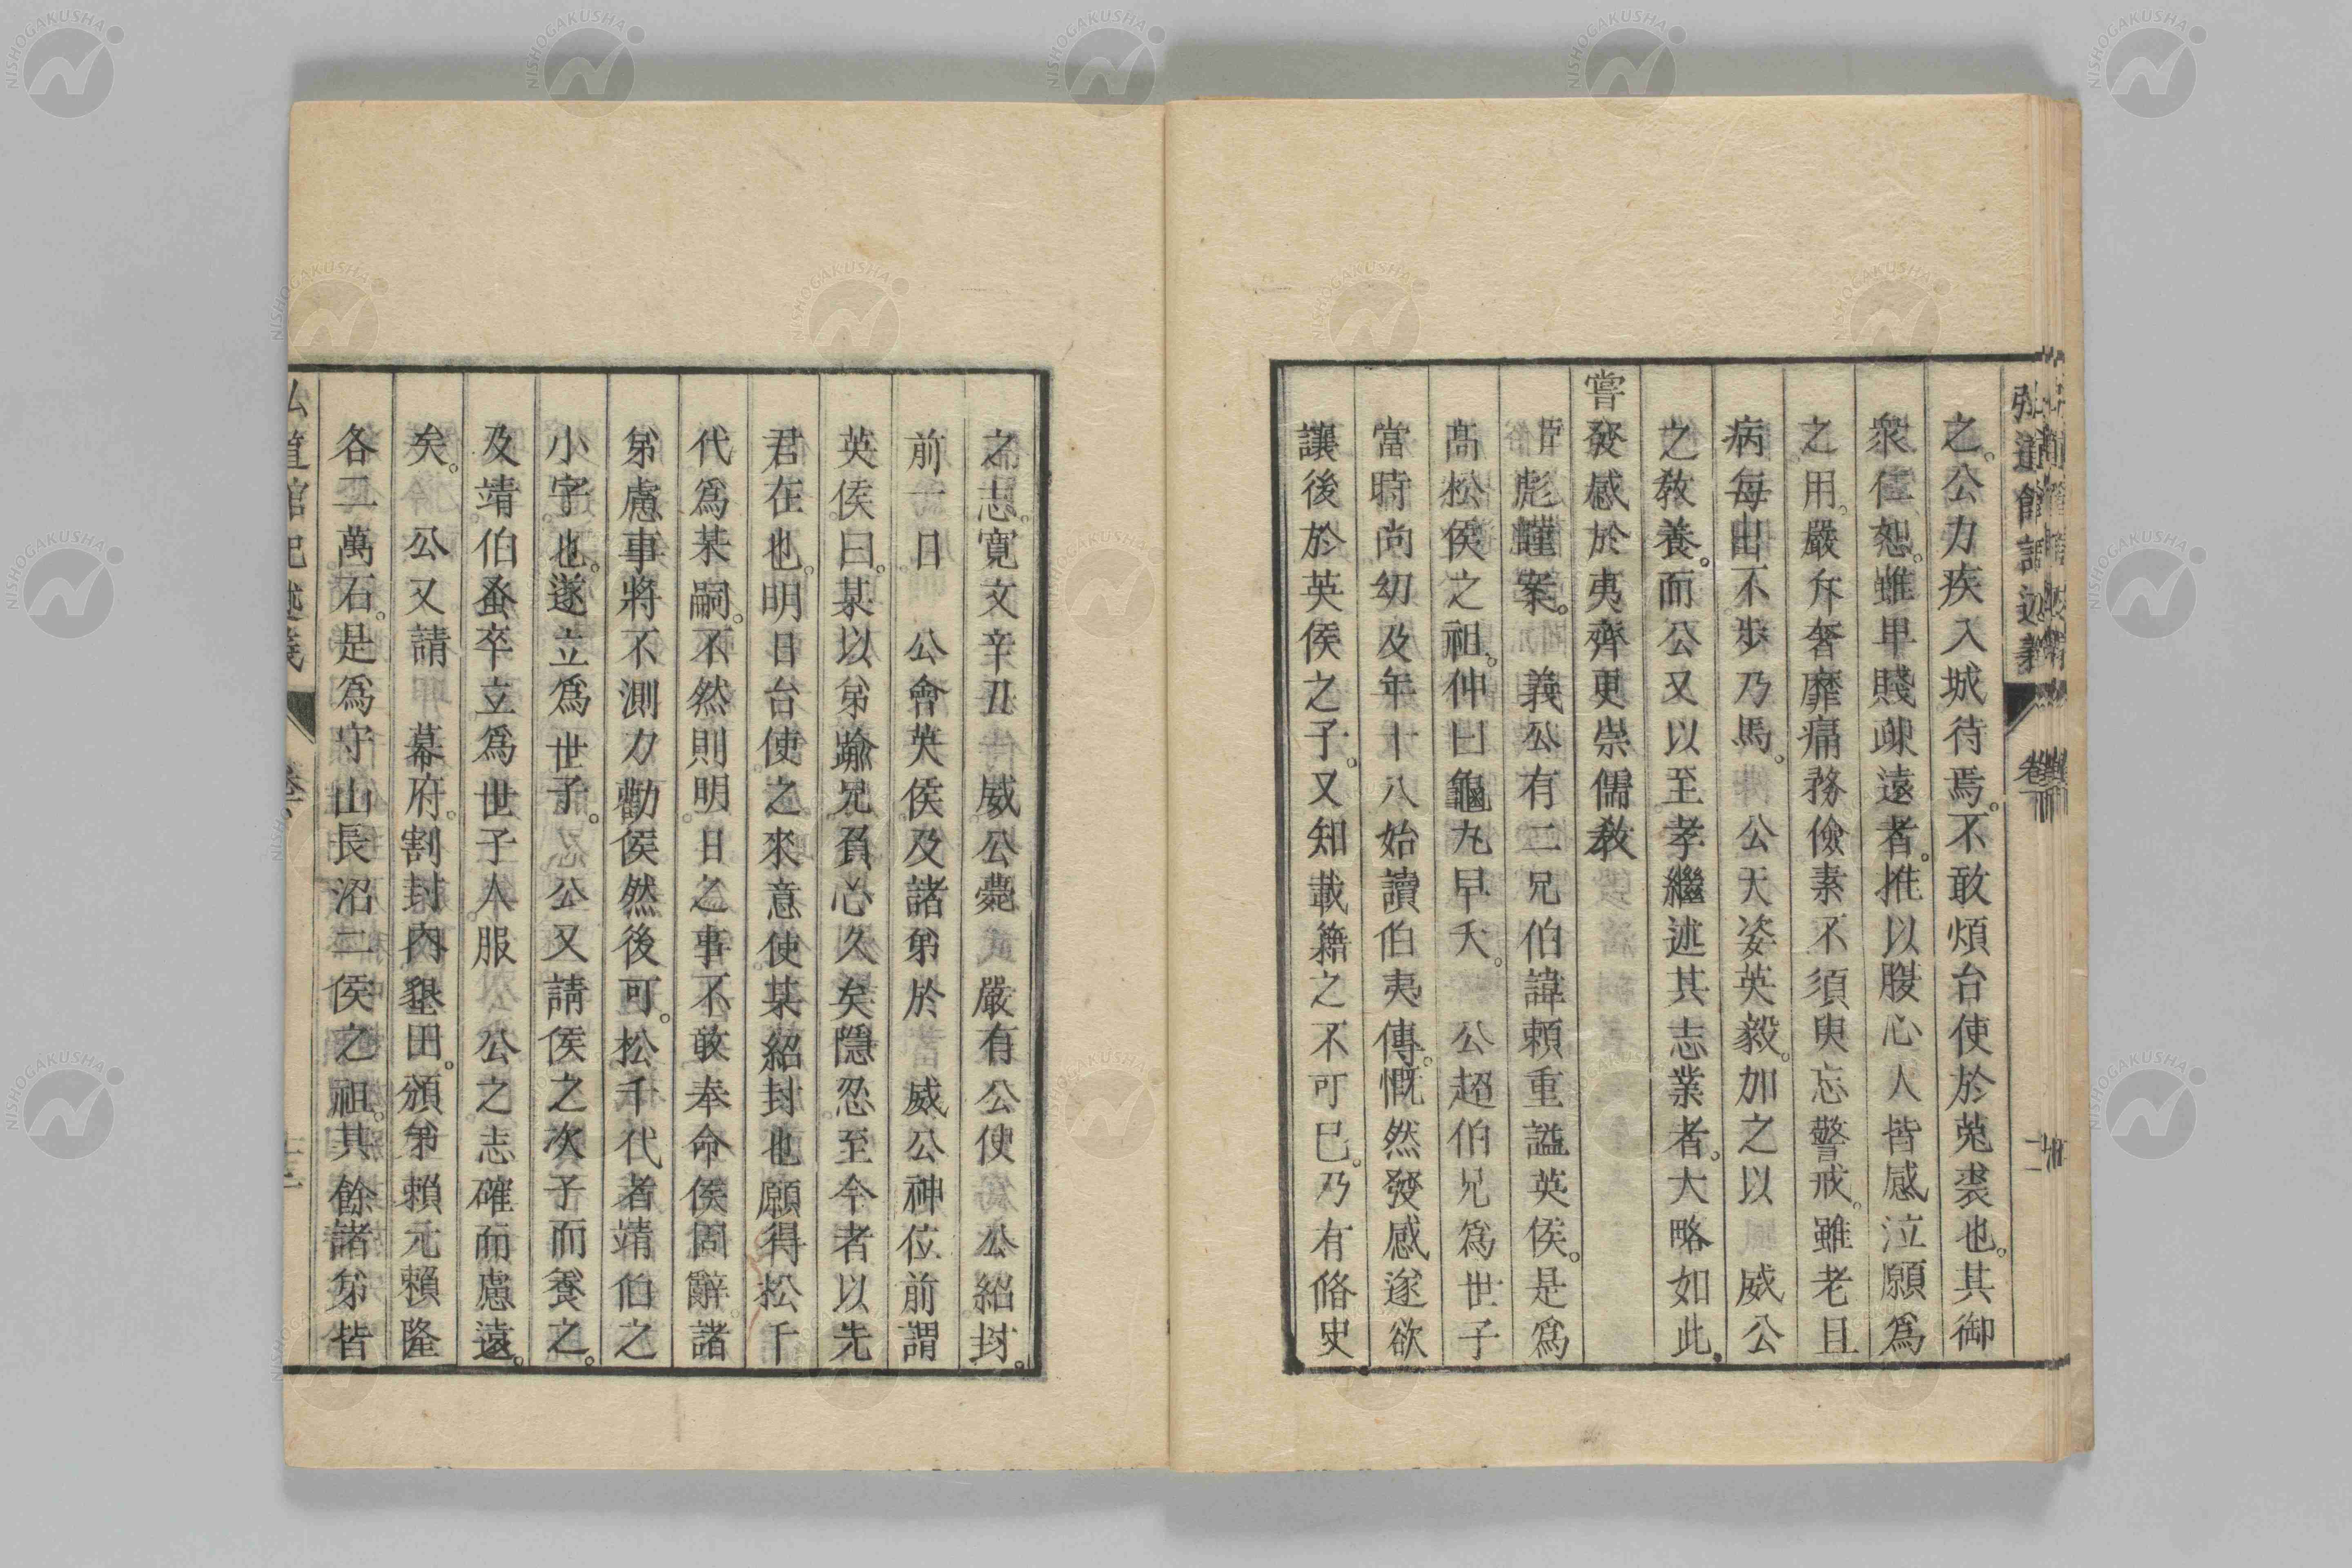 弘道館記述義
卷下
之。公力疾入城待焉。不敢煩台使於菟裘也。其御
衆仁恕。雖卑賤疎遠者。推以腹心。人皆感泣願爲
之用。嚴斥奢靡痛務儉素不須臾忘警戒。雖老且
病每出不步乃馬。公天姿英毅。加之以威公
之敎養。而公又以至孝繼述其志業者。大略如此。
嘗發感於夷齊更崇儒敎
臣彪謹案。義公有二兄伯諱賴重謚英侯。是爲
髙松侯之祖。仲曰龜九早夭。公超伯兄爲世子
當時尚幼及年十八始讀伯夷傳。慨然發感遂欲
讓後於英侯之子。又知載籍之不可已。乃有脩史
之志。寛文辛丑威公薨嚴有公使公紹封。
前一日公會英侯及諸弟於威公神位前謂
英侯曰。某以弟踰兄負心久矣隱忍至今者以先
君在也。明日台使之來意使某紹封也願得松千
代爲某嗣。不然則明日之事不敢奉命侯固辭。諸
弟慮事將不測力勸侯然後可。松千代者靖伯之
小字也。遂立爲世子。公又請侯之次子而養之。
及靖伯蚤卒立爲世子人服公之志確而慮遠。
矣。公又請幕府。割封內墾田。頒弟賴元賴隆
各二萬石。是爲守山長沼二侯之祖。其餘諸弟皆
弘道館記述義
卷下